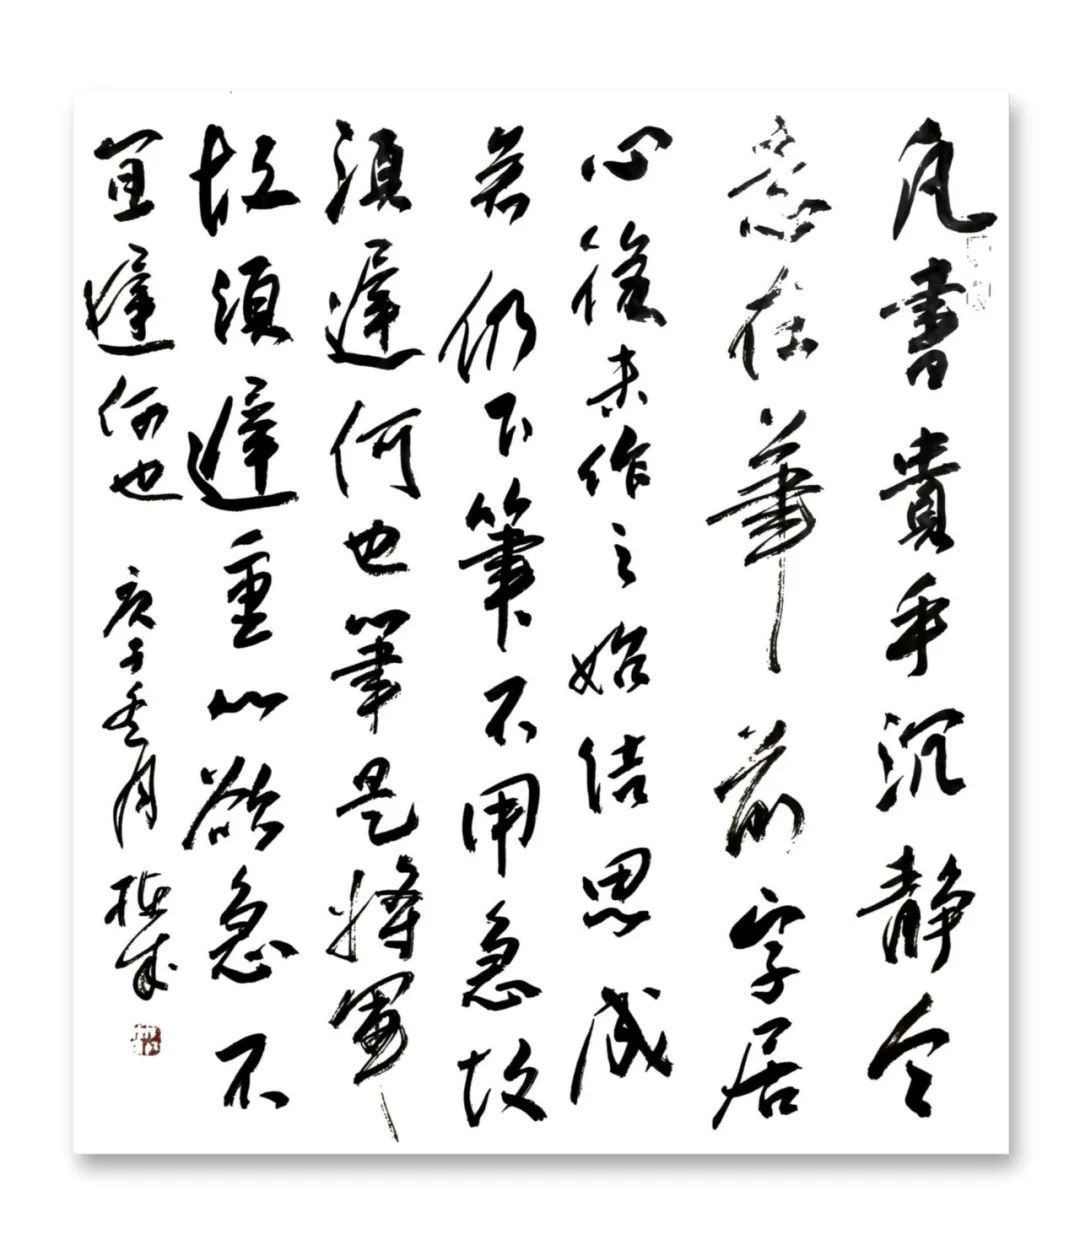 凡書貴乎沉静令
意在筆前字居
心後未作之始结思成
矣仍下筆不用急故
須遲何也筆是將軍
故須遲重心欲急不
宜遲何也
庚子月